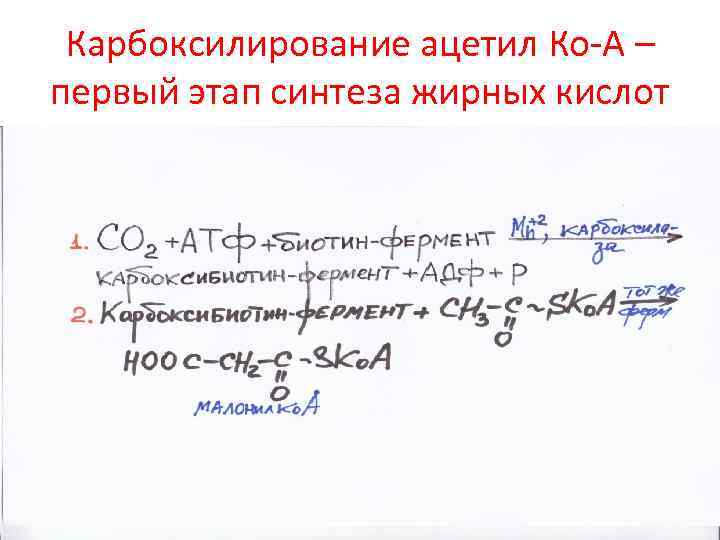 Карбоксилирование ацетил Ко-А –
первый этап синтеза жирных кислот
1. CO₂ + АТФ + биотин-фермент Mn⁺², карбоксила-
за
карбоксибиотин-фермент + АДФ + Р
2. Карбоксибиотин-фермент + CH₃-C~SKoA тот же
ферм
O
HOOC-CH₂-C~SKoA
O
малонил ко А